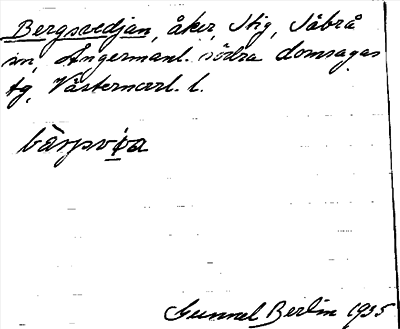 Bergsvedjan, åker, Stig, Säbrå
sn, Ångermanl. södra domsagas
tg, Västernorrl. l.
Gunnel Berlin 1935